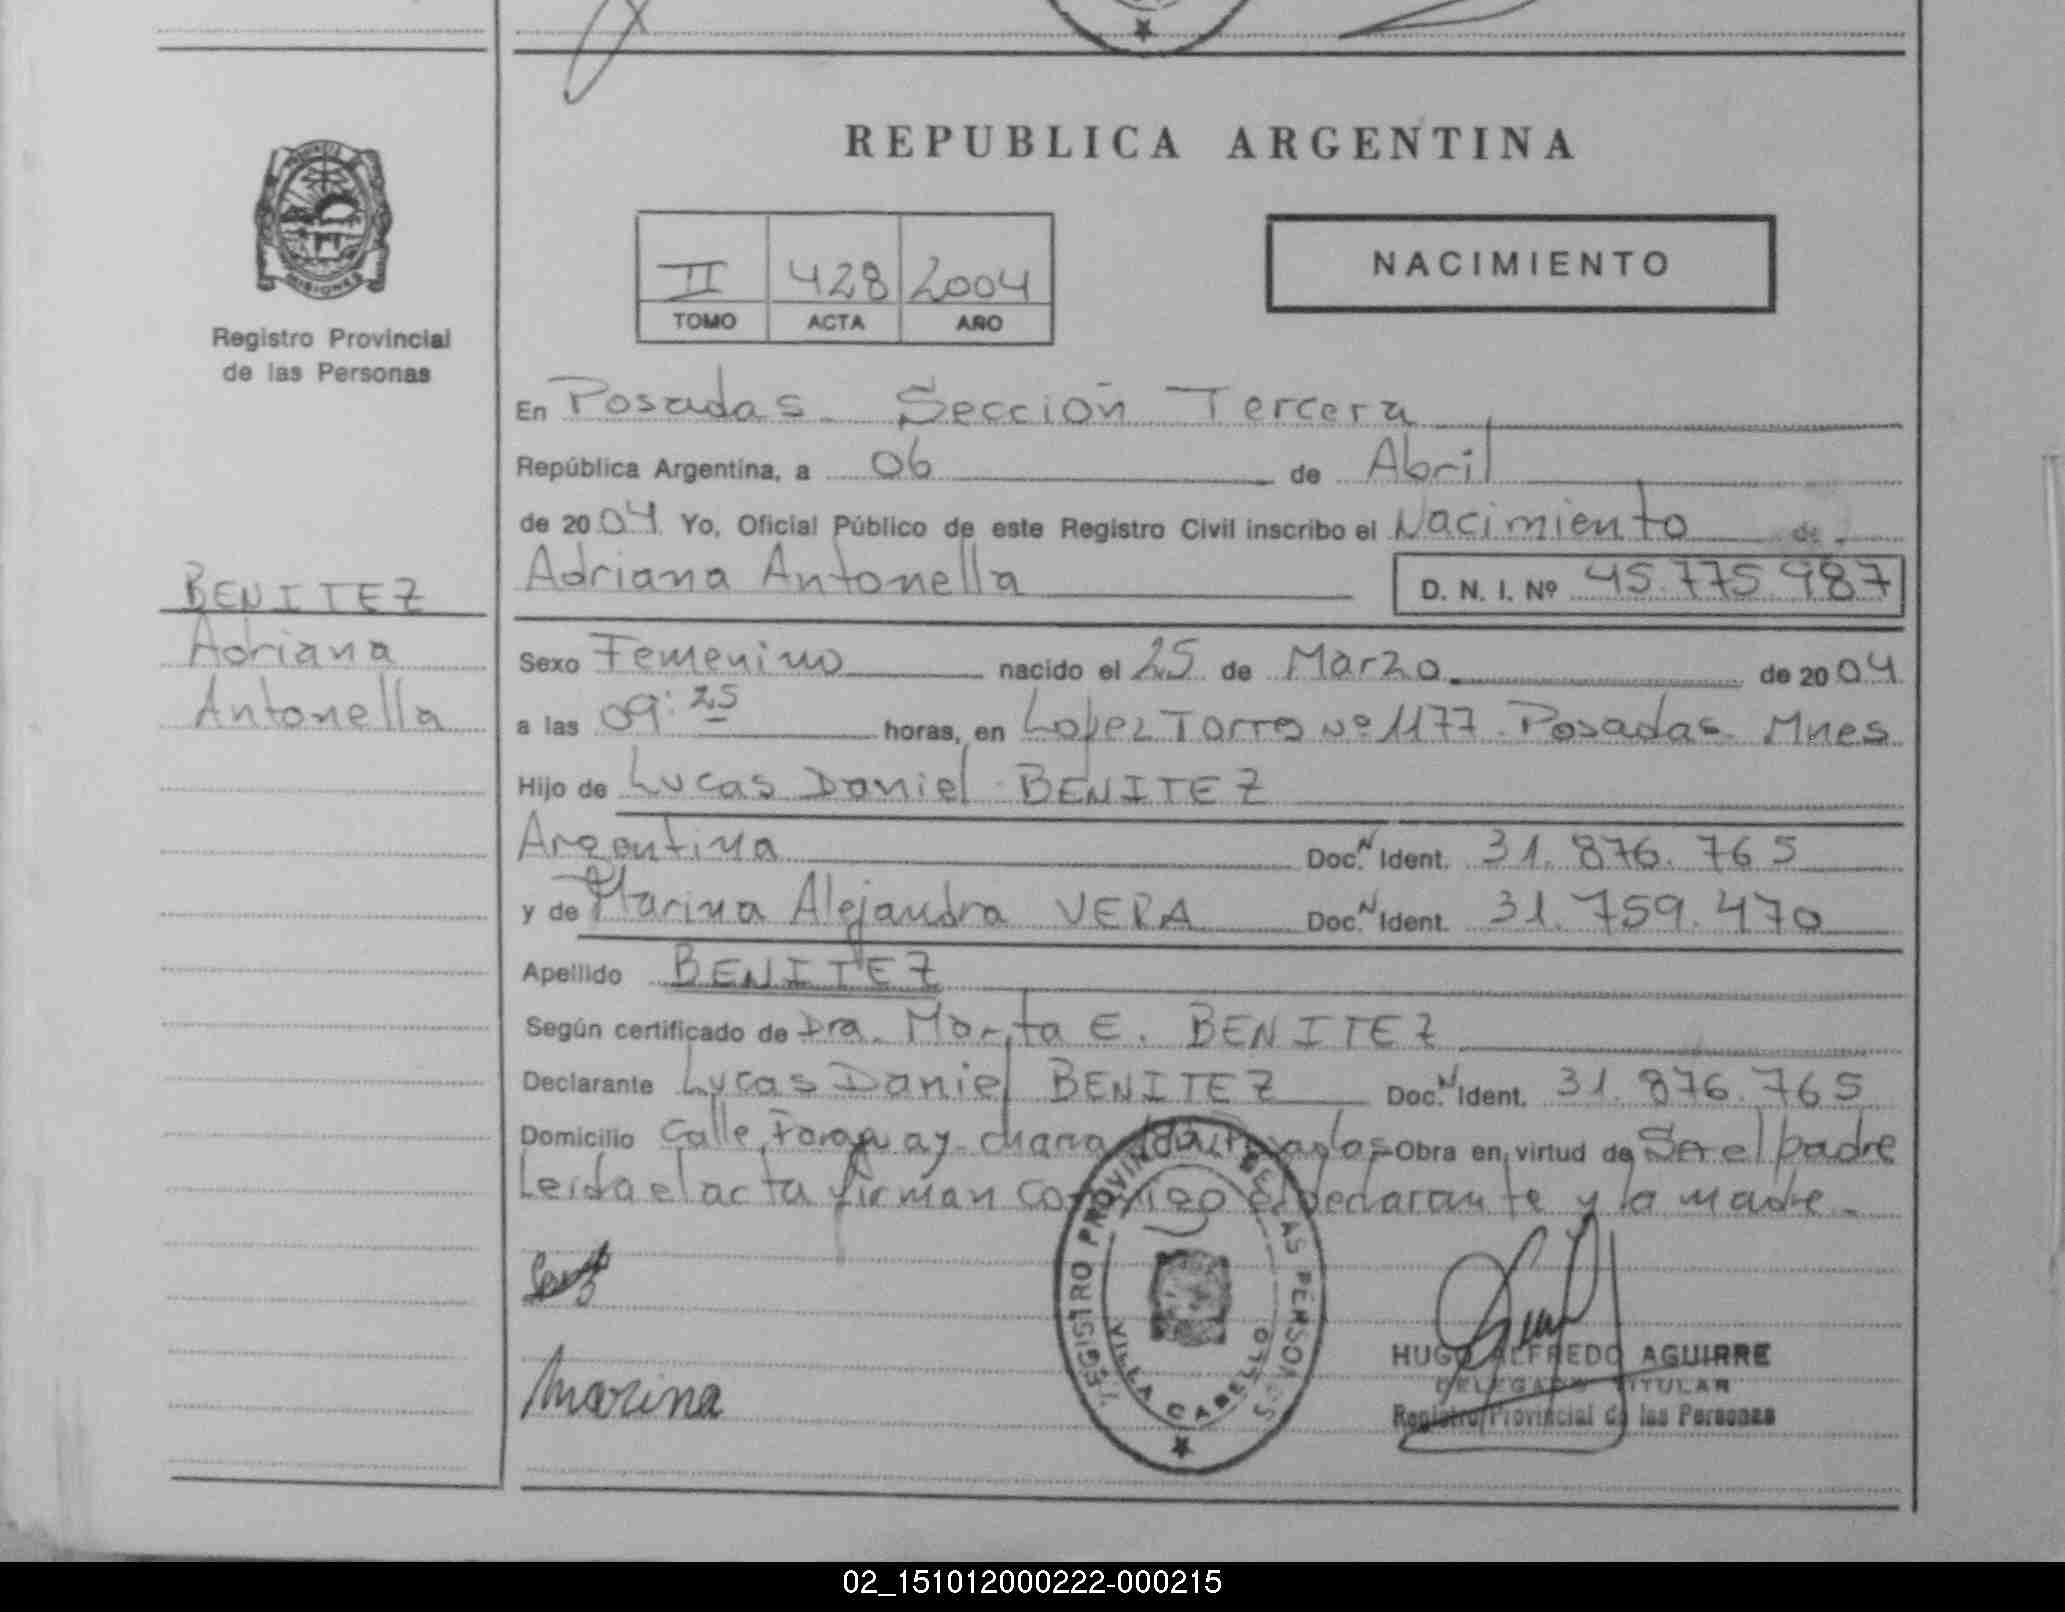 REPUBLICA ARGENTINA
MISIONES
Registro Provincial
de las Personas
II 428 2004
TOMO ACTA AÑO
NACIMIENTO
En Posadas - Sección Tercera
República Argentina, a 06 de Abril
de 2004 Yo, Oficial Público de este Registro Civil inscribo el Nacimiento de
Adriana Antonella D. N. I. Nº 45.775.987
BENITEZ
Adriana
Antonella
Sexo Femenino nacido el 25 de Marzo de 2004
a las 09:25 horas, en Lopez Torres Nº 1177 - Posadas - Mnes
Hijo de Lucas Daniel BENITEZ
Argentina Doc. N Ident. 31.876.765
y de Marina Alejandra VERA Doc. N Ident. 31.759.470
Apellido BENITEZ
Según certificado de Dra. Marta E. BENITEZ
Declarante Lucas Daniel BENITEZ Doc. N Ident. 31.876.765
Domicilio Calle Paraguay - chacra Obra en virtud de Ser el padre
Leida el acta firman conmigo el declarante y la madre -
REGISTRO PROVINCIAL DE LAS PERSONAS
VILLA CABELLO
Marina
HUGO ALFREDO AGUIRRE
DELEGADO TITULAR
Registro Provincial de las Personas
02_151012000222-000215